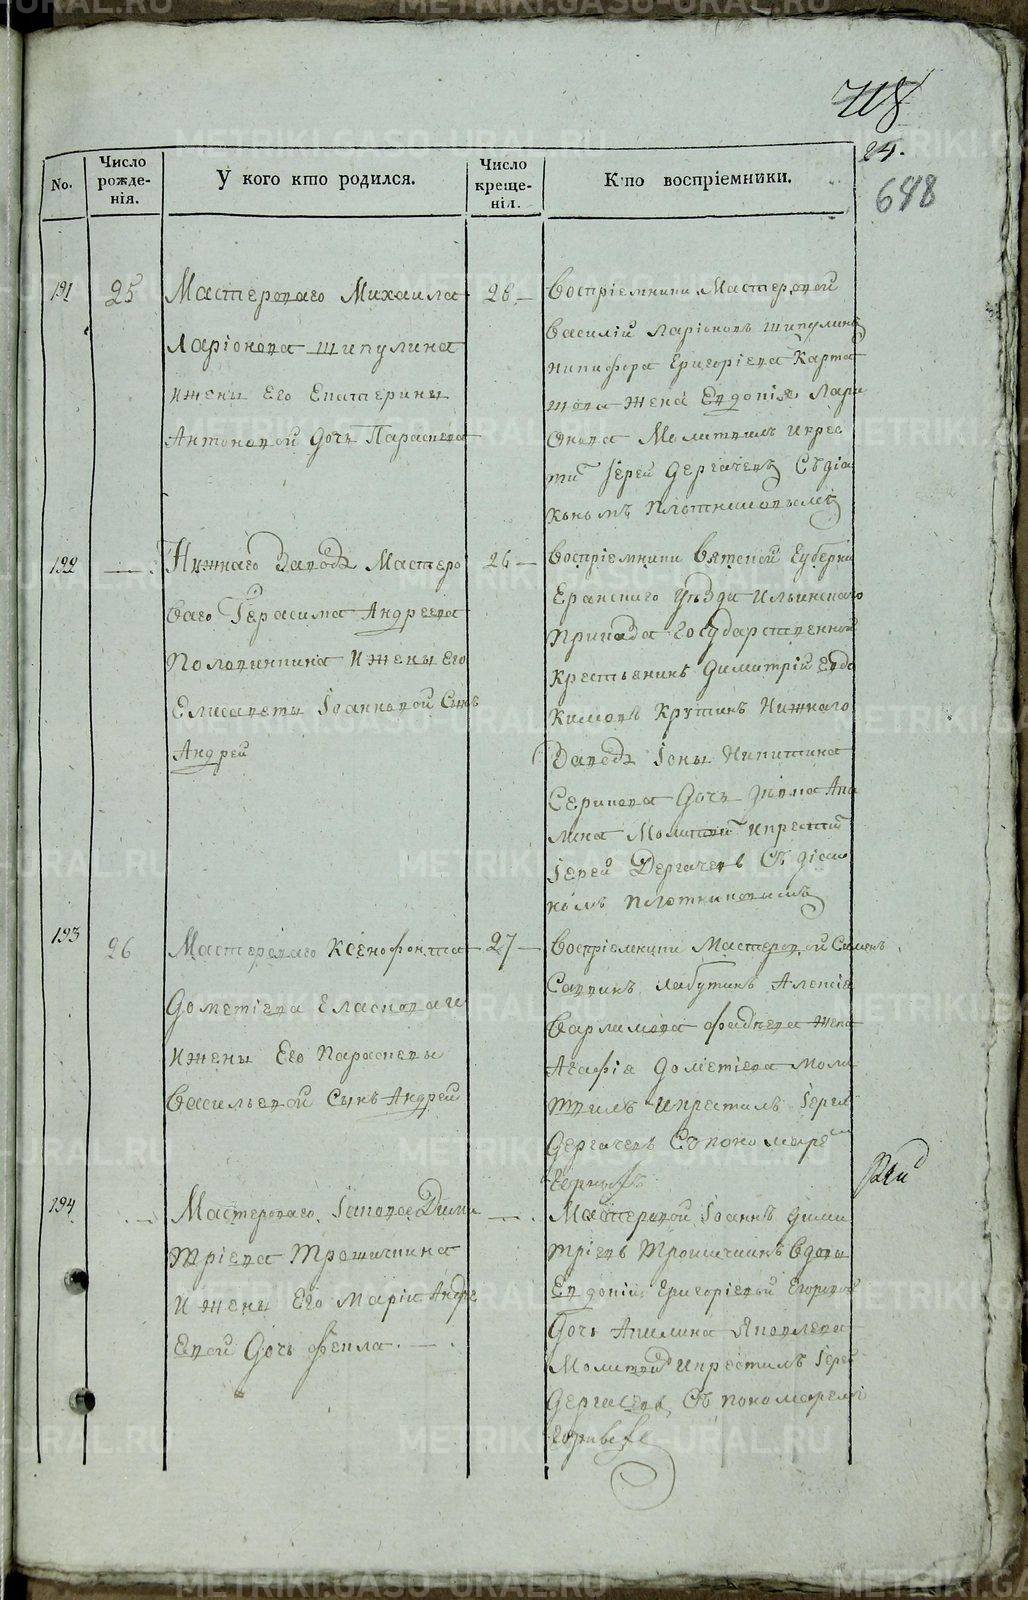 718
24.
688
No.
Число рожде-нія.
У кого кто родился.
Число креще-нія.
Кто воспріемники.
191
25
Мастероваго Михаила
Ларіонова Шипулина
и жены Его Екатерины
Антоновой дочь Параскева
28
Воспріемники Мастеровой
Василій Ларіоновъ Шипулинъ
Никифора Григоріева Карта
шова жена Евдокія Лари
онова Молитвилъ и крес
тил Іерей Дергачевъ Съ діа
кономъ Плотниковымъ
192
Нижнаго Завода Мастеро
ваго Герасима Андреева
Половинкина и жены Его
Елисаветы Іоанновой Сынъ
Андрей
26
Воспріемники Вятской Губерни
Еранскаго Уѣзда Ильинскаго
прихода Государственной
Крестьенинъ Димитрій Евдо
кимовъ Крутинъ Нижнаго
Завода Іоны Никитина
Серикова Дочь дѣвка Аки
лина Молитвил и крестил
Іерей Дергачевъ Съ діако
номъ Плотниковымъ
193
26
Мастероваго Ксенофонта
Дометіева
и жены Его Параскевы
Васильевой Сынъ Андрей
27
Воспріемники Мастеровой Симеонъ
Саввинъ Лабутинъ Алексія
Варламова Фадѣева жена
Агафіа Дометіева Моли
твилъ и крестилъ Іерей
Дергачевъ Съ пономаре
194
Мастероваго Іакова Дими
тріева Трошичкина
и жены Его Маріи Андре
евой Дочь Фекла
Мастеровой Іоаннъ Дими
тріевъ Трошичкинъ вдовы
Евдокіи Григоріевой Егоровой
Дочь Акилина Яковлева
Молитвил и крестилъ Іерей
Дергачевъ Съ пономарем